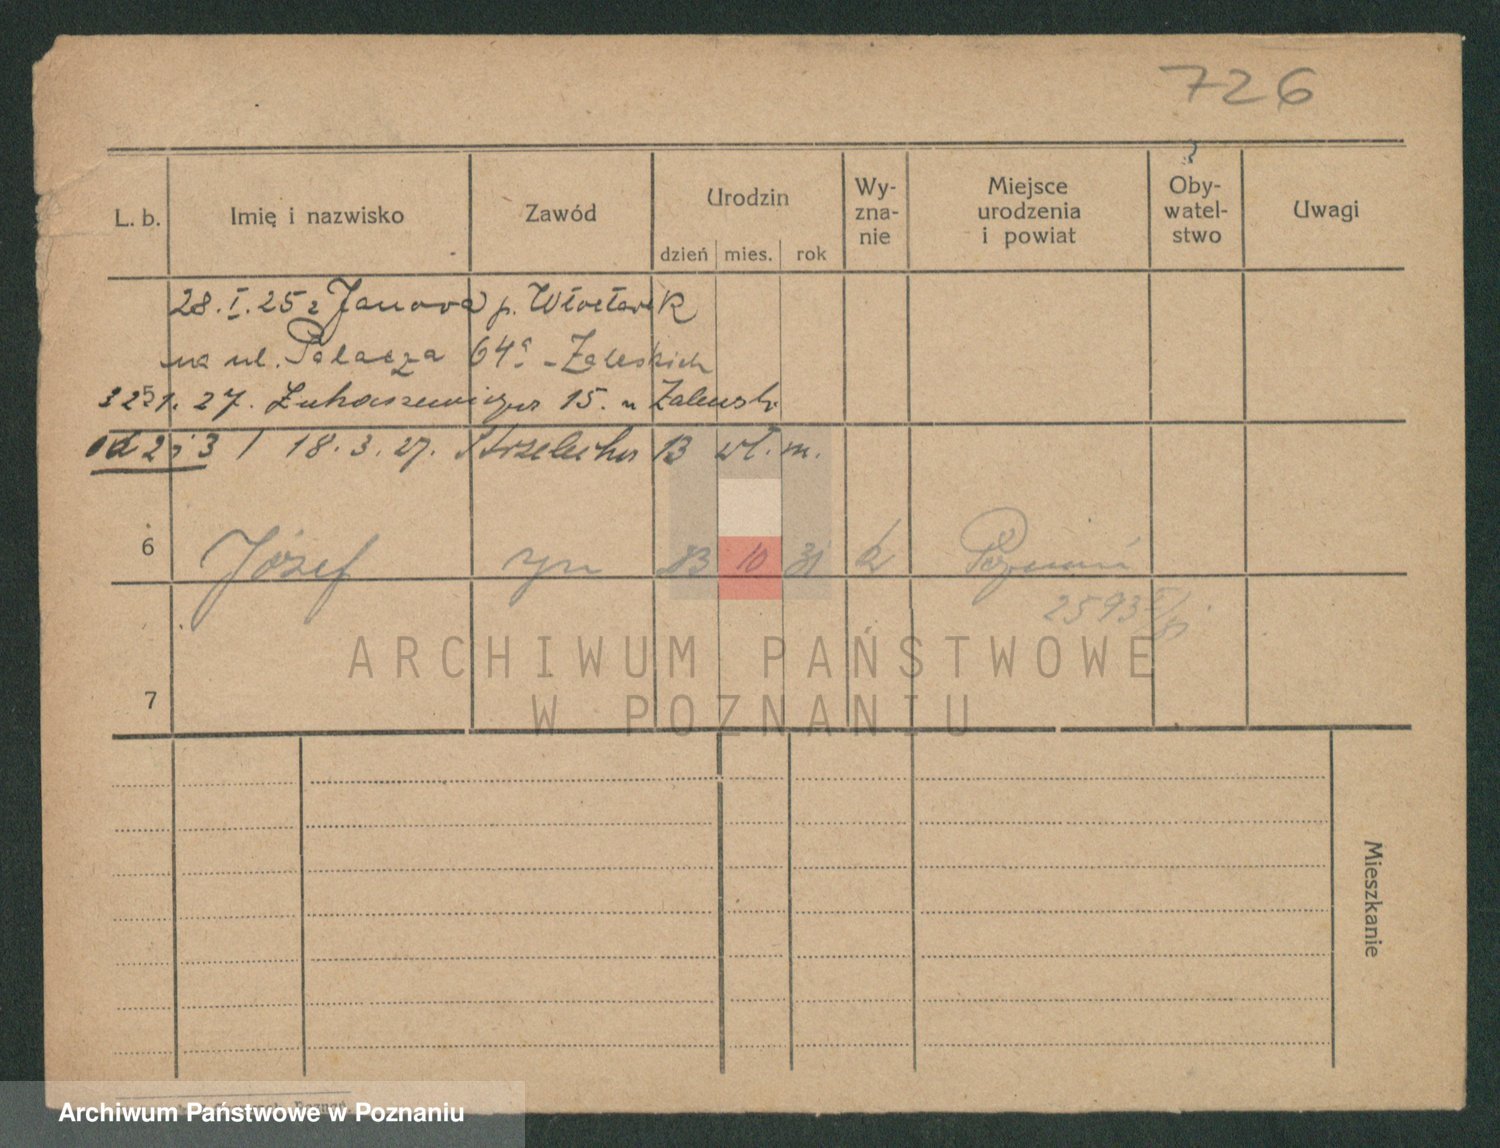 726
L. b.
Imię i nazwisko
Zawód
Urodzin
dzień mies. rok
Wy-
zna-
nie
Miejsce
urodzenia
i powiat
Oby-
watel-
stwo
Uwagi
28. I. 25 z Janowa p. Włocławek
na ul. Palacza 64a - Zaleskich
5
1. 27. Łukaszewicza 15. u Zalewsk.
od 2 i 3 / 18. 3. 27. Strzelecka 13 wł. m.
6 Józef syn 13 10 31 k Poznań
2593
7
ARCHIWUM PAŃSTWOWE
W POZNANIU
Mieszkanie
Archiwum Państwowe w Poznaniu